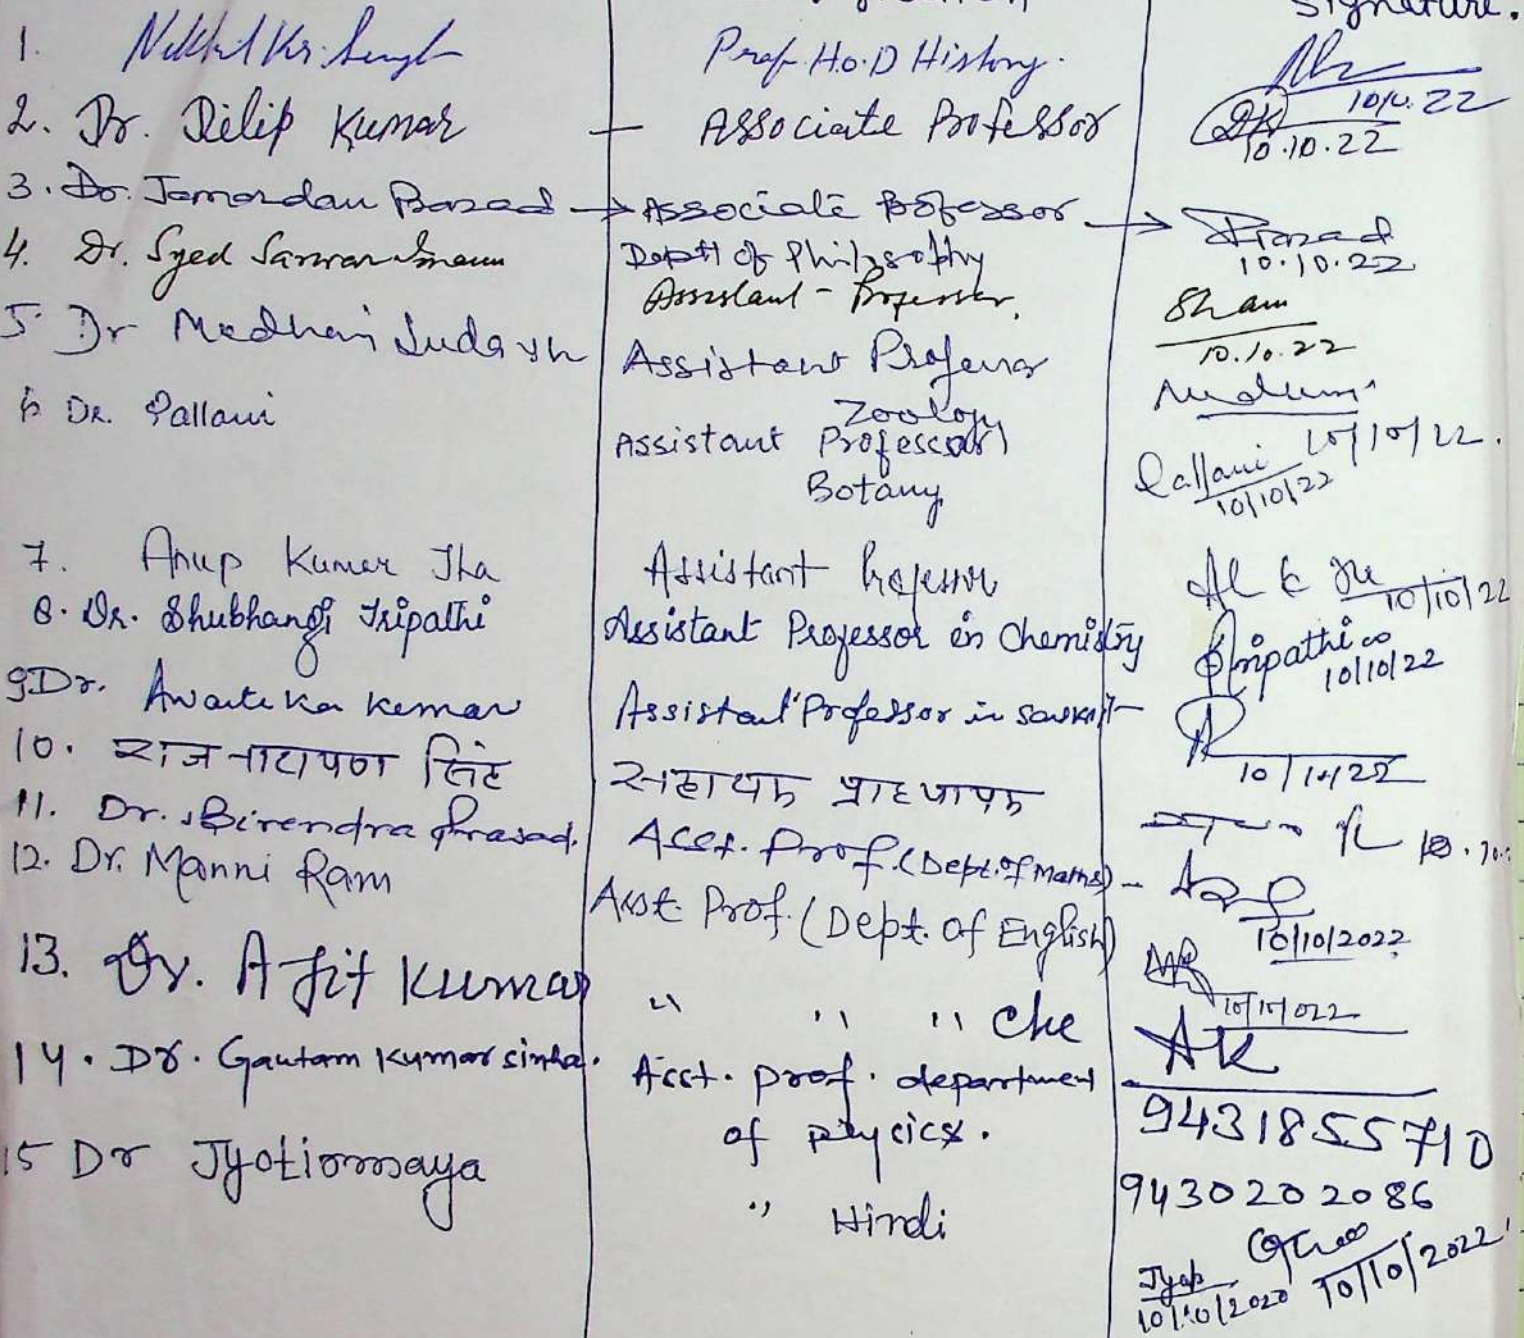 Signature.
1. Nikhil Kr. Singh Prof. H.O.D History.
10.10.22
2. Dr. Dilip Kumar — Associate Professor DK
10.10.22
3. Dr. Janardan Prasad → Associate Professor → Prasad
Deptt of Philosophy 10.10.22
4. Dr. Syed Sarwar Imam Assistant - Professor.
10.10.22
5. Dr Madhavi Sudarsh Assistant Professor
Zoology 10/10/22.
6 Dr. Pallavi Assistant Professor Pallavi
Botany 10/10/22
7. Anup Kumar Jha Assistant Professor
10/10/22
8. Dr. Shubhangi Tripathi Assistant Professor in Chemistry Tripathi
10/10/22
9. Dr. Awaiteka Kumar Assistant Professor in Sanskrit
10/10/22
10. राज नारायण सिंह सहायक प्राध्यापक
11. Dr. Birendra Prasad. Asst. Prof. (Dept. of Maths) -
10/10/2022
12. Dr. Manni Ram Asst. Prof. (Dept. of English)
10/10/022
13. Dr. Ajit Kumar " " " Che AK
9431855710
14. Dr. Gautam Kumar sinha. Asst. prof. department
of physics. 9430202086
10/10/2022
15 Dr Jyotirmaya " Hindi Jyoti
10/10/2020